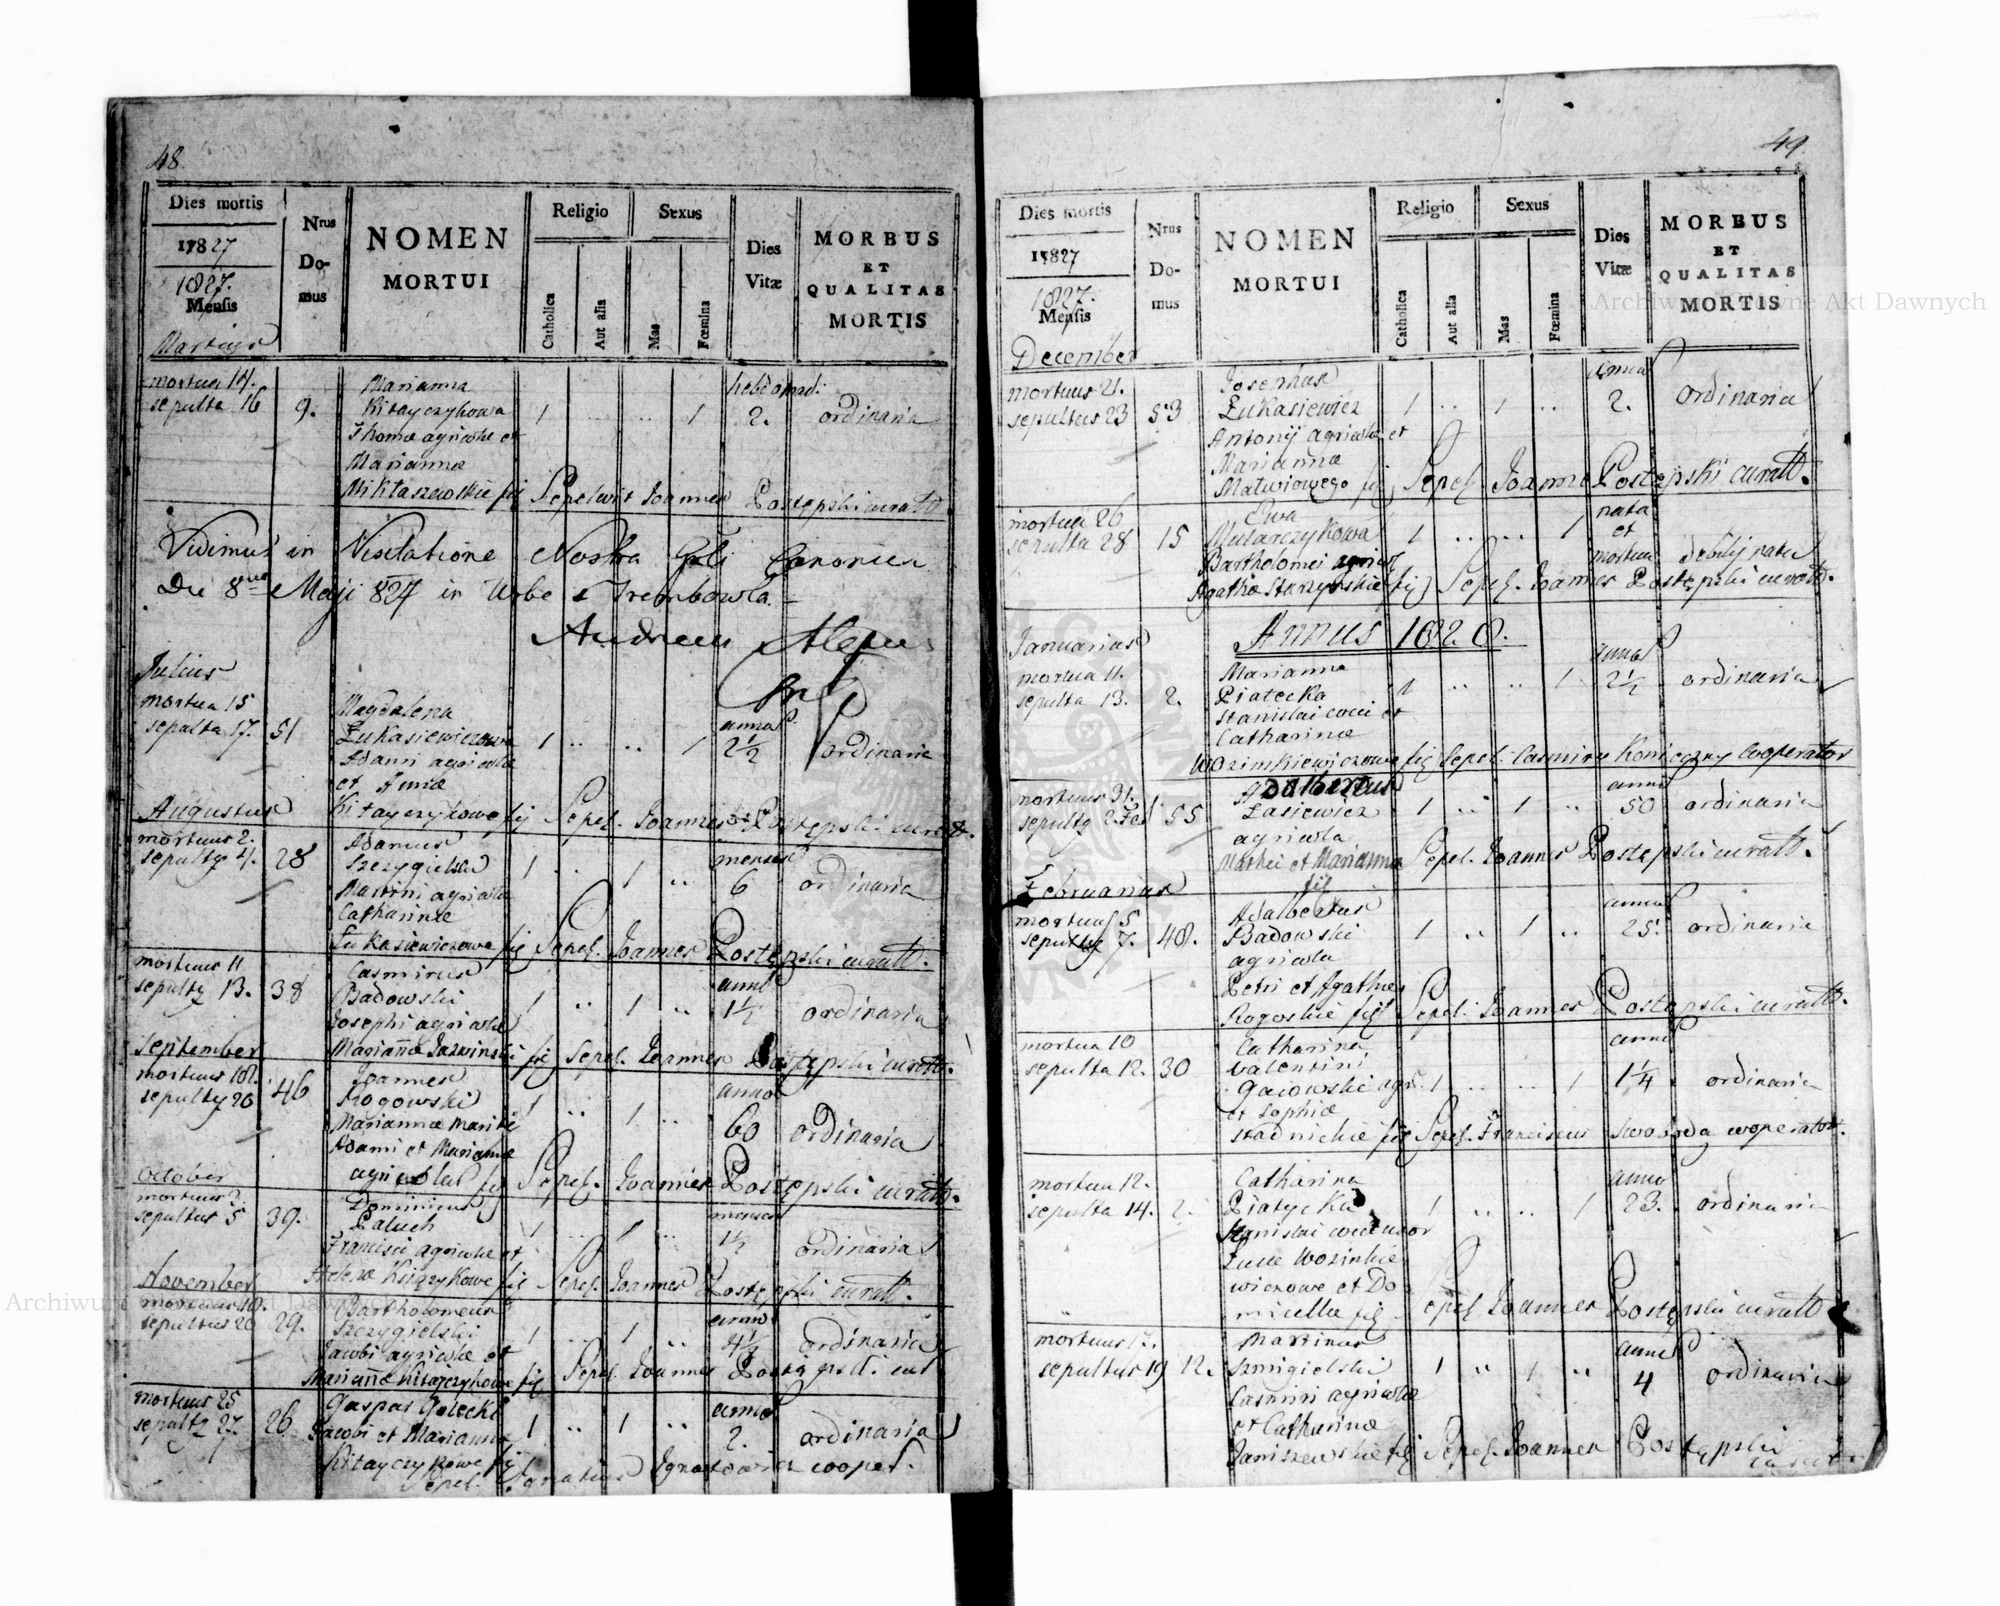 48.
Dies mortis
1827
1827.
Mensis
Martius
Nrus
Do-
mus
NOMEN
MORTUI
Religio
Catholica
Aut alia
Sexus
Mas
Fœmina
Dies
Vitæ
MORBUS
ET
QUALITAS
MORTIS
mortua 14.
sepulta 16
9.
Marianna
Kitayczykowa
Thomæ agricolæ et
Mariannæ
Miklaszewskie fij
1 .. .. 1
hebdomad:
2.
ordinaria
Sepelivit Joannes Postępski curatt.
Vidimus in Visitatione Nostra Gnli Canonica
Die 8va Maji 827 in Urbe Trembowla.
Andreas
Julius
mortua 15
sepulta 17.
51
Magdalena
Łukasiewiczowa
Adami agricolæ
et Annæ
Kitayczykowe fij
1 .. .. 1
annos
2½
ordinaria
Sepel. Joannes Postępski curatt.
Augustus
mortuus 2.
sepultg 4.
28
Adamus
Szczygielski
Martini agricolæ
Catharinæ
Łukasiewiczowe fij
1 .. 1 ..
menses
6
ordinaria
Sepel. Joannes Postępski curatt.
mortuus 11
sepultg 13.
38
Casmirus
Badowski
Josephi agricolæ
Marianæ Jazwinski fij
1 .. 1 ..
anno
1½
ordinaria
Sepel. Joannes Postępski curatt.
September
mortuus 18.
sepultg 20
46
Joannes
Rogowski
Mariannæ
Adami et Mariannæ
1 .. 1 ..
annos
60
ordinaria
Sepel. Joannes Postępski curatt.
October
mortuus 2.
sepultus 5
39.
Dominicus
Paluch
Francisci agricolæ et
Helenæ Książykowe fij
1 .. 1 ..
menses
1½
ordinaria
Sepel. Joannes Postępski curatt.
November
mortuus 18.
sepultus 20
29.
Bartholomeus
Szczygielski
Jacobi agricolæ et
Marianæ Kitayczykowe fij
1 .. 1 ..
annos
4½
ordinaria
Sepel. Joannes Postępski cur
mortuus 25
sepultg 27.
26.
Gaspar Golecki
Jacobi et Mariannæ
Kitayczykowe fij
1 .. 1 ..
annos
2.
ordinaria
Sepel. Ignatius Ignatowicz cooper.
49.
Dies mortis
1827
1827.
Mensis
December
Nrus
Do-
mus
NOMEN
MORTUI
Religio
Catholica
Aut alia
Sexus
Mas
Fœmina
Dies
Vitæ
MORBUS
ET
QUALITAS
MORTIS
mortuus 21.
sepultus 23
53
Josephus
Łukasiewicz
Antonij agricolæ et
Mariannæ
Matwiowego fij
1 .. 1 ..
annos
2.
ordinaria
Sepel. Joannes Postępski curatt.
mortua 26
sepulta 28
15
Ewa
Mularczykowa
Bartholomei agricol
Agathæ Starzynskie fij
1 .. .. 1
nata
et
mortua
Sepel. Joannes Postępski curatt.
Annus 1828.
Januarius
mortua 11.
sepulta 13.
2.
Marianna
Piatecka
Stanislai et
Catharinæ
Wozimkiewiczowe fij
1 .. .. 1
annos
2½
ordinaria
Sepel. Casmirus Konieczny Cooperator
mortuus 31.
sepultg 2 Feb
55
Adalbertus
Łasiewicz
agricola
Mathei et Mariannæ
fil
1 .. 1 ..
annos
50
ordinaria
Sepel. Joannes Postępski curatt.
Februarius
mortuus 5
sepultg 7.
48.
Adalbertus
Badowski
agricola
Petri et Agathæ
Rogoskie fij
1 .. 1 ..
annos
25.
ordinaria
Sepel. Joannes Postępski curatt.
mortua 10
sepulta 12.
30
Catharina
Valentini
Gaiowski agr.
et Sophiæ
Stadnickie fij
1 .. .. 1
anno
1¼
ordinaria
Sepel. Franciscus Swoięda cooperator.
mortua 12.
sepulta 14.
2.
Catharina
Piatycka
Stanislai
Lucæ Wozinkie
wiczowe et Do
micella fij
1 .. .. 1
anno
23.
ordinaria
Sepel. Joannes Postępski curatt
mortuus 17.
sepultus 19
12.
Martinus
Szmigielski
Casmiri agricolæ
et Catharinæ
Janiszewskie fij
1 .. 1 ..
annos
4
ordinaria
Sepel. Joannes Postępski
Archiwum Główne Akt Dawnych